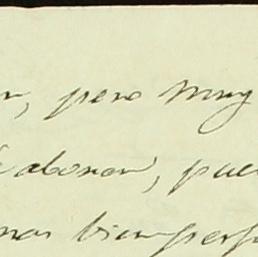 pero muy
abonar, pue
nos bien perf